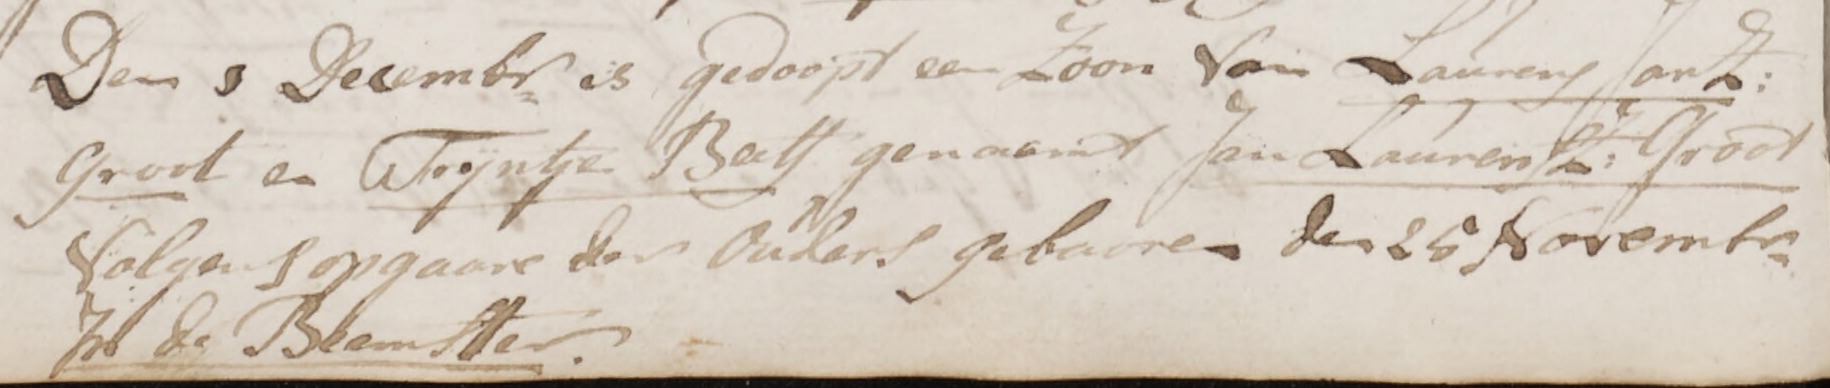 Den 3 Decembr is gedoopt een Zoon van Laurens JanZ:
Groot en Trÿntje Bets genaamt Jan LaurensZ: Groot
volgens opgaave der Ouders gebooren den 25 Novembr
In de Beemster.